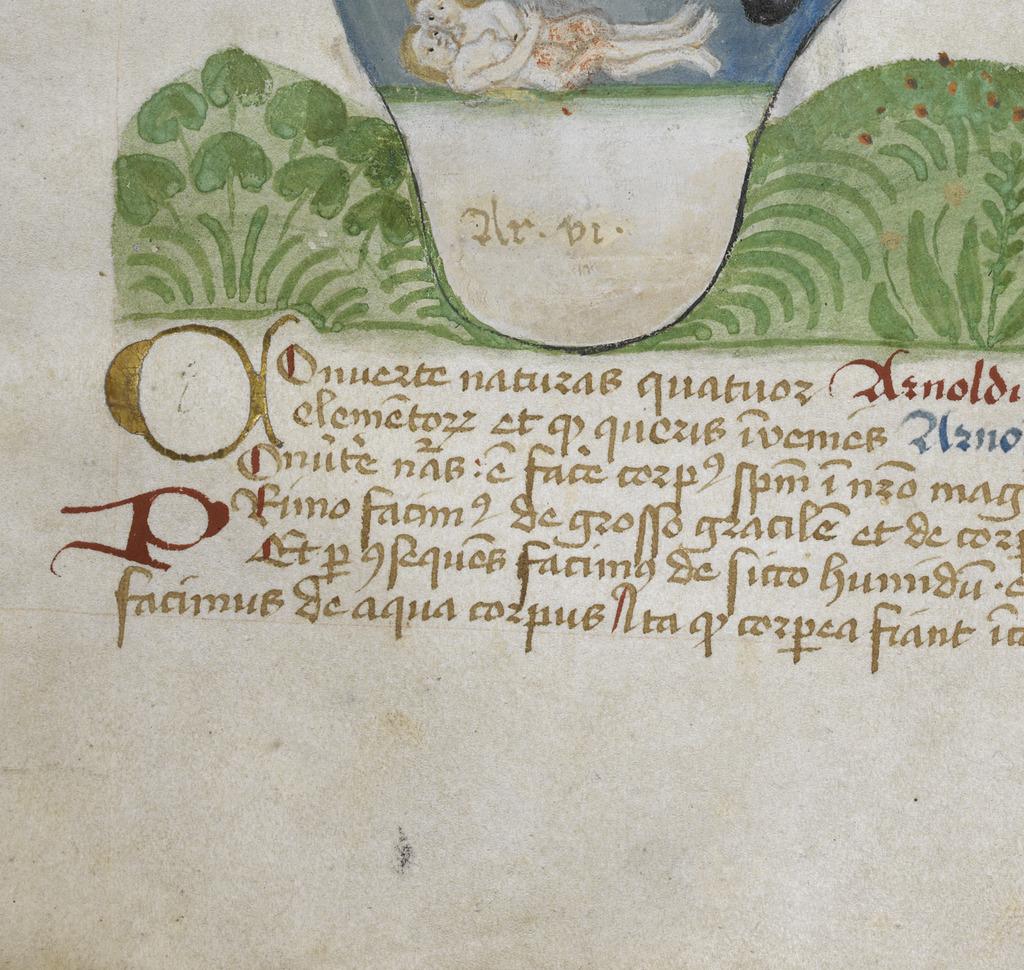 Ar. vi.
Conuerte naturas quatuor Arnoldu
elemētoꝝ et ꝙ queris īvenies Arno
Conu̾te nr̄as : ē fac̾e corpꝯ spm̄ ī nr̄o mag
Primo facimꝯ de grosso gracilē et de corp
Et ꝑ ꝯsequēs facimꝯ de sicco humidū · e
facimus de aqua corpus Ita ꝙ corpea fiant īco